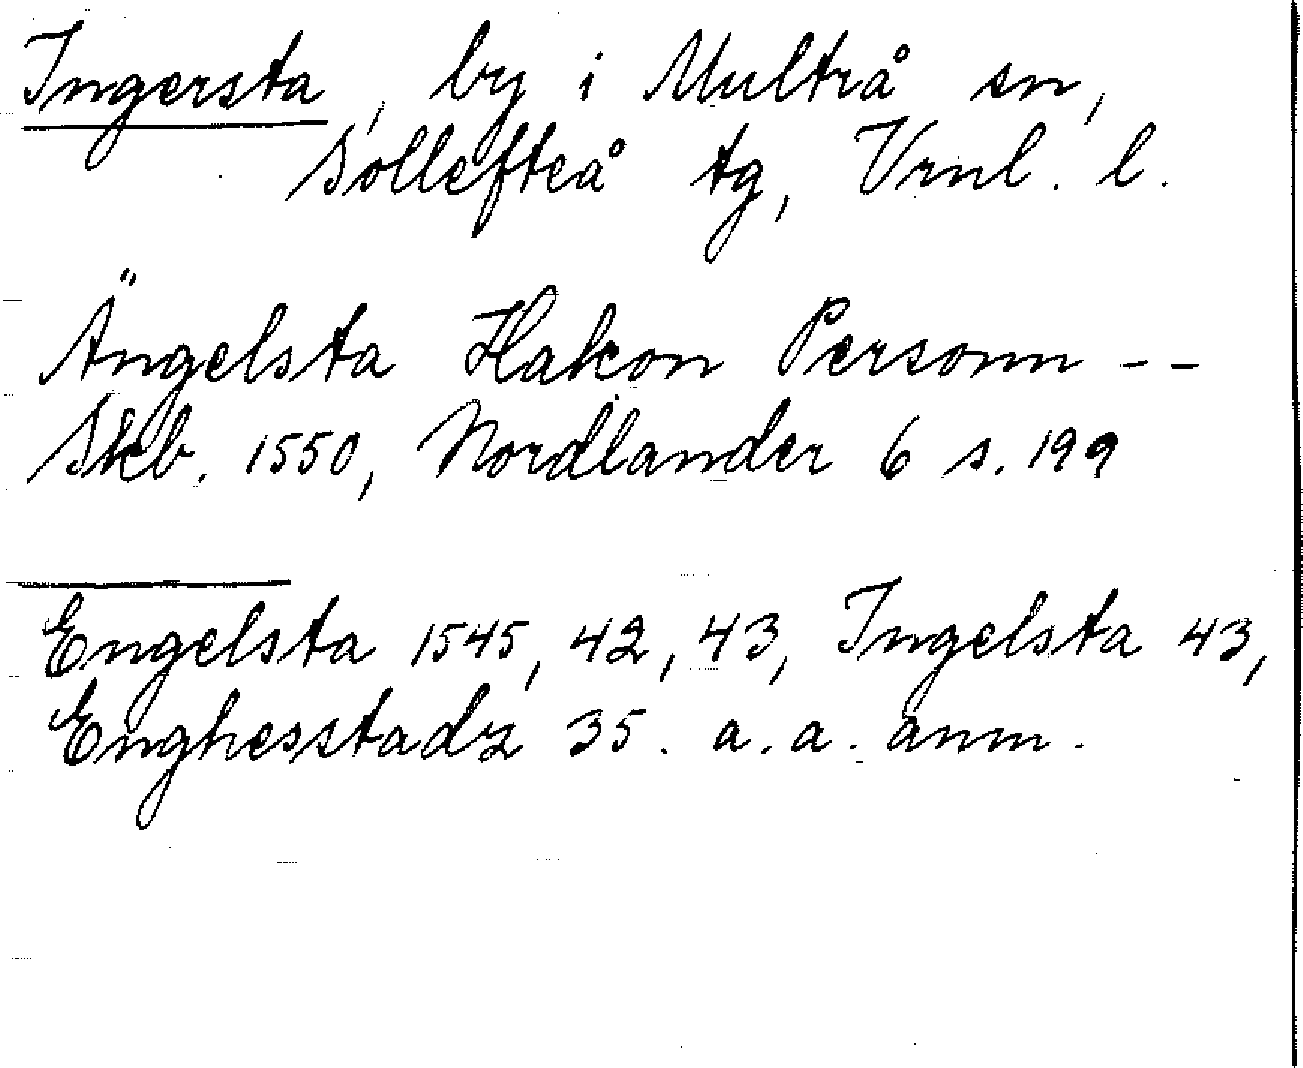 Ingersta, by i Multrå sn,
Sollefteå tg, Vrnl. l.
Ängelsta Hakon Personn --
Skb. 1550, Nordlander 6 s. 199
Engelsta 1545, 42, 43, Ingelsta 43,
Enghesstadz 35. a. a. anm.